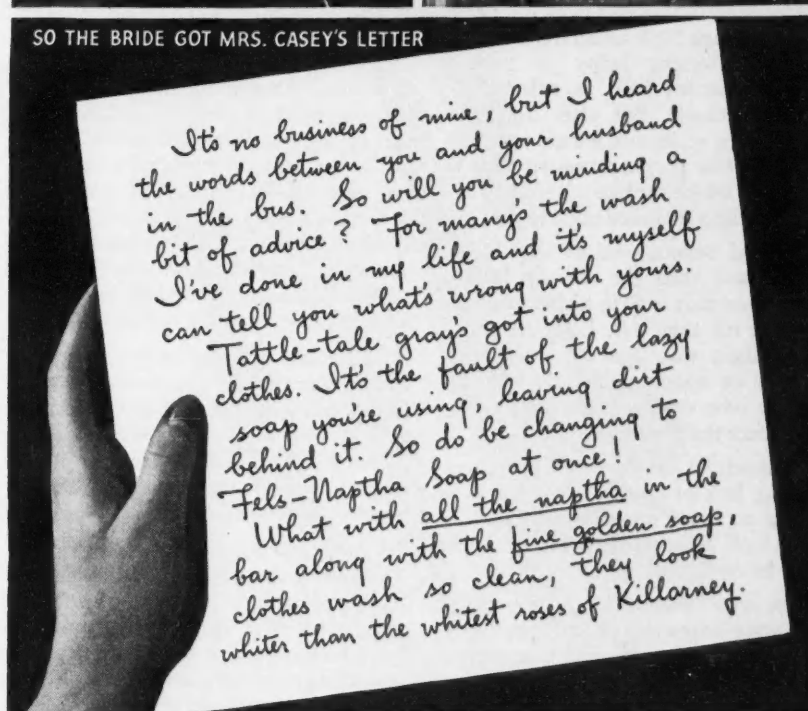 SO THE BRIDE GOT MRS. CASEY'S LETTER
It's no business of mine, but I heard
the words between you and your husband
in the bus. So will you be minding a
bit of advice? For many's the wash
I've done in my life and it's myself
can tell you what's wrong with yours.
Tattle-tale gray's got into your
clothes. It's the fault of the lazy
soap you're using, leaving dirt
behind it. So do be changing to
Fels-Naptha Soap at once!
What with all the naptha in the
bar along with the fine golden soap,
clothes wash so clean, they look
whiter than the whitest roses of Killarney.